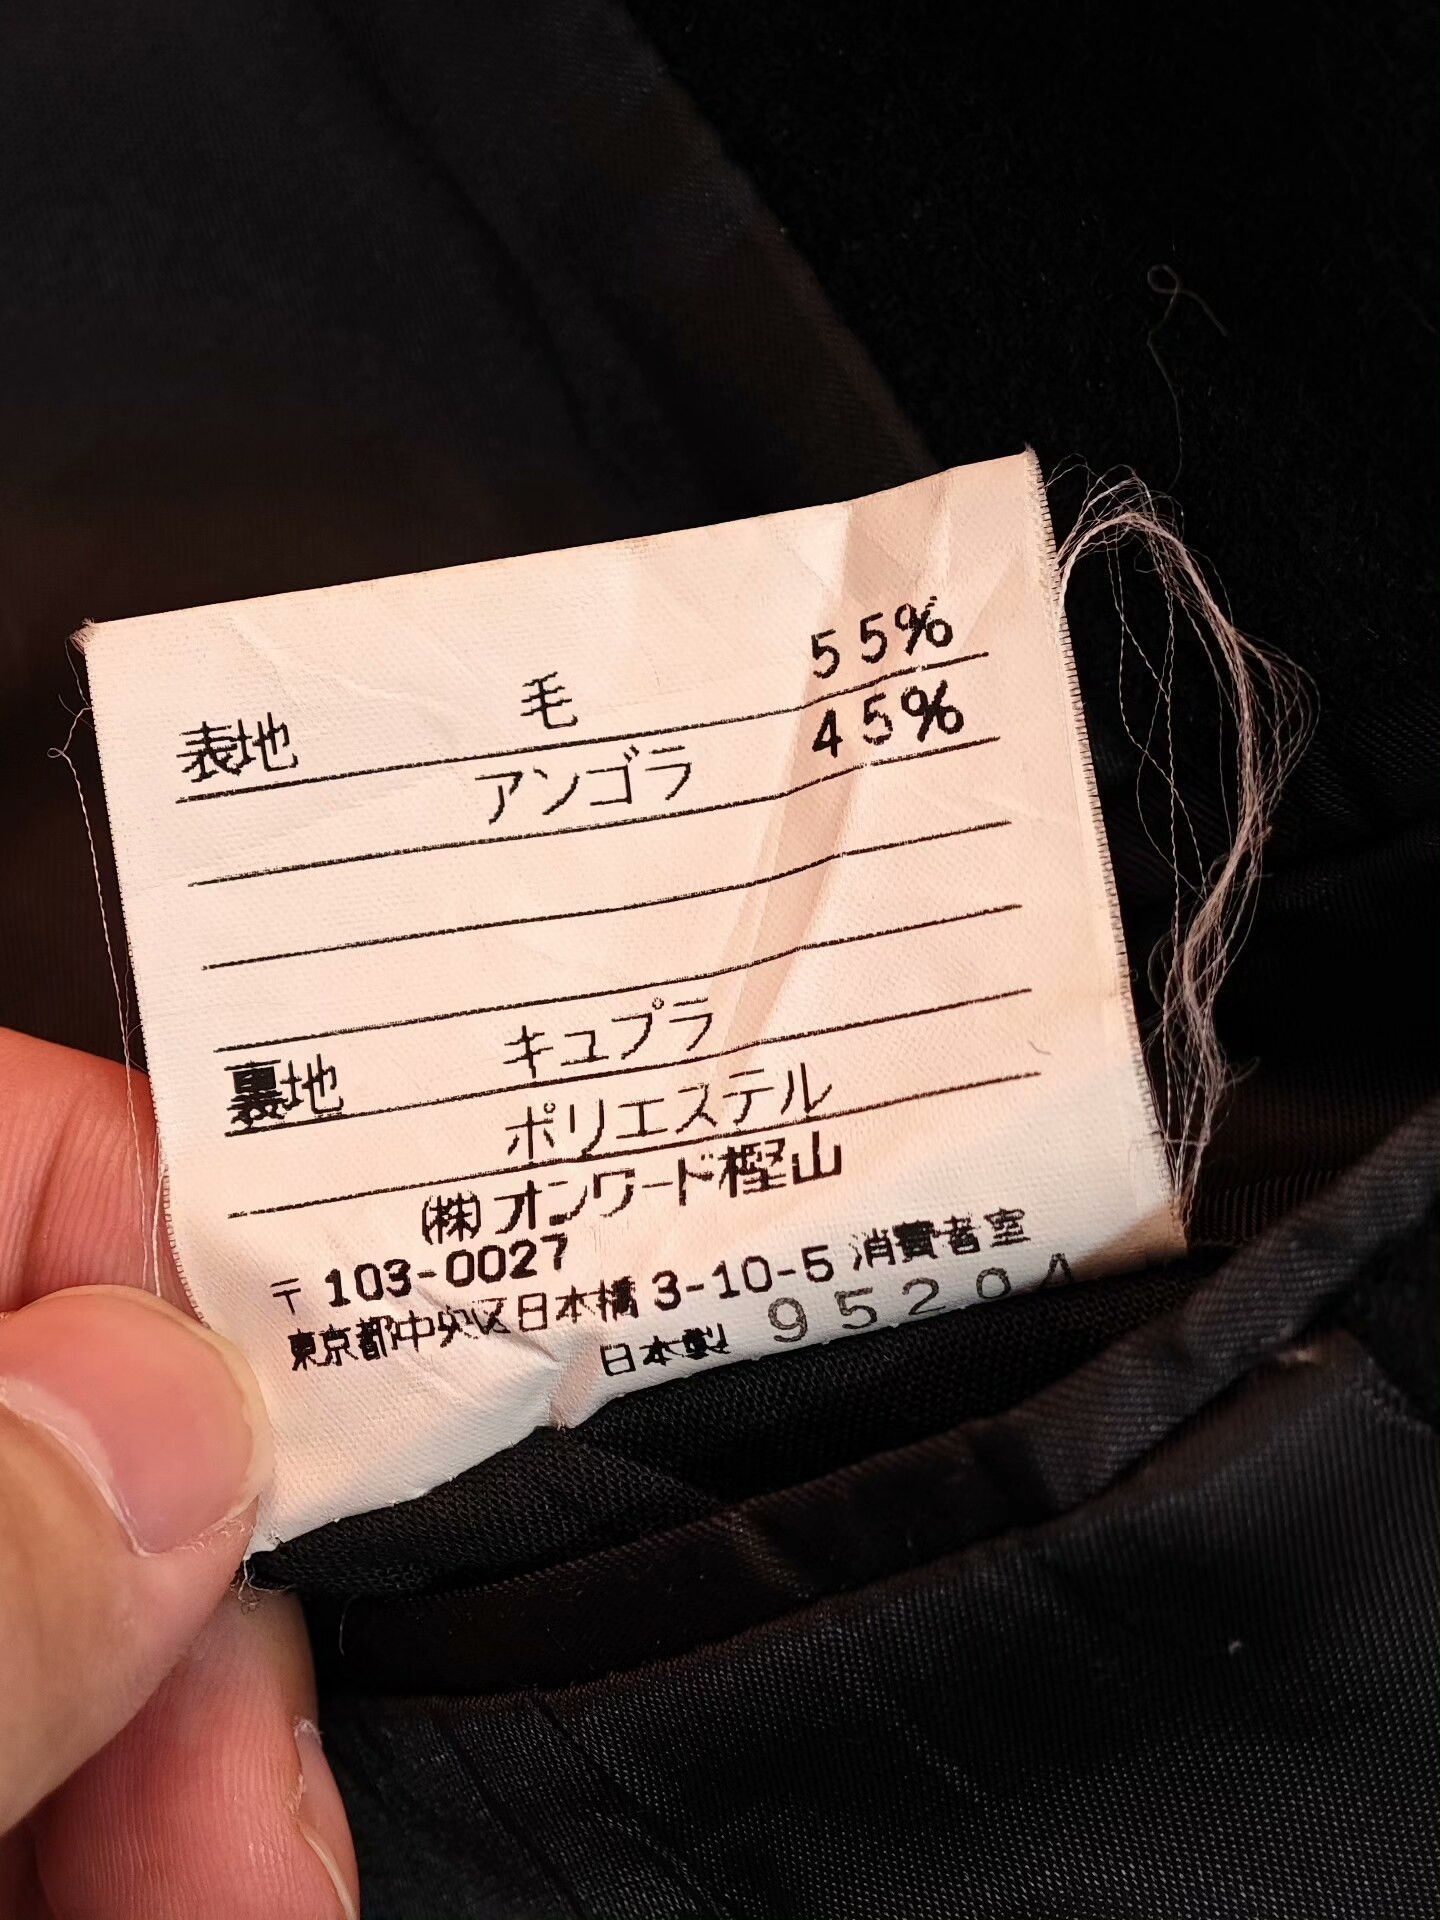 表地 毛 55%
アンゴラ 45%
裏地 キュプラ
ポリエステル
㈱オンワード樫山
〒103-0027
東京都中央区日本橋3-10-5 消費者室
日本製 95204